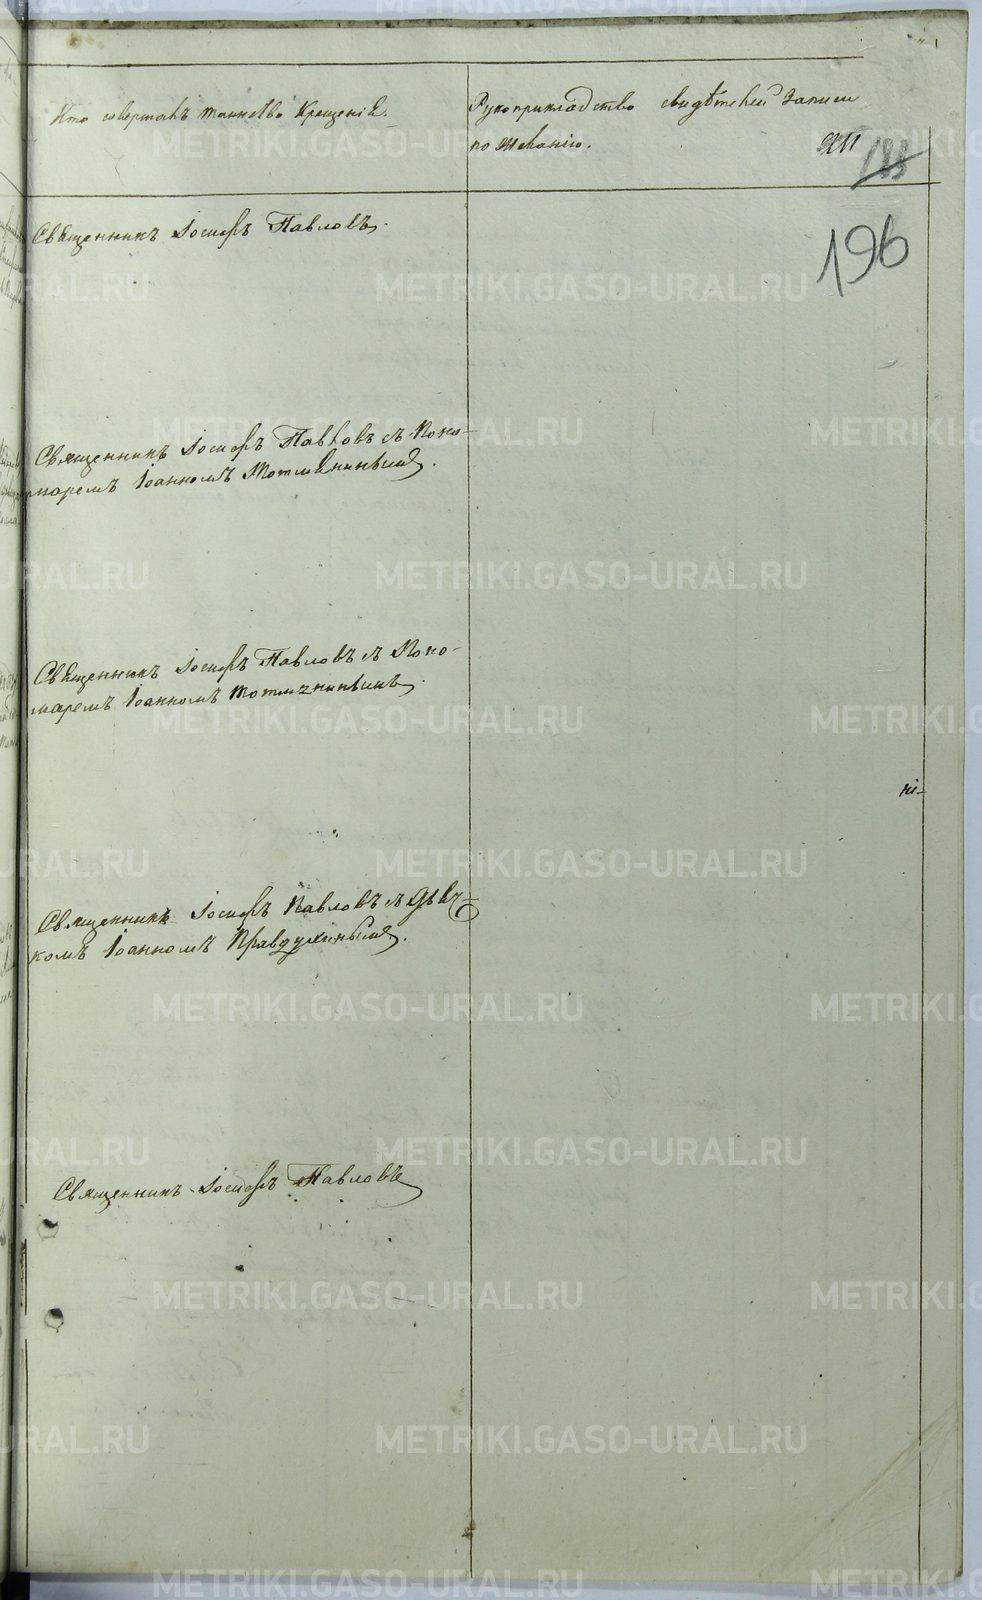 Кто совершалъ таинство Крещенія.
Рукоприкладство свидѣтелей записи
по желанію.
188
196
Священникъ Іосифъ Павловъ.
Священникъ Іосифъ Павловъ съ Поно-
маремъ Іоанномъ
Священникъ Іосифъ Павловъ съ Поно-
маремъ Іоанномъ
Священникъ Іосифъ Павловъ съ Дьяч-
комъ Іоанномъ Правдухинымъ.
Священникъ Іосифъ Павловъ
METRIKI.GASO-URAL.RU